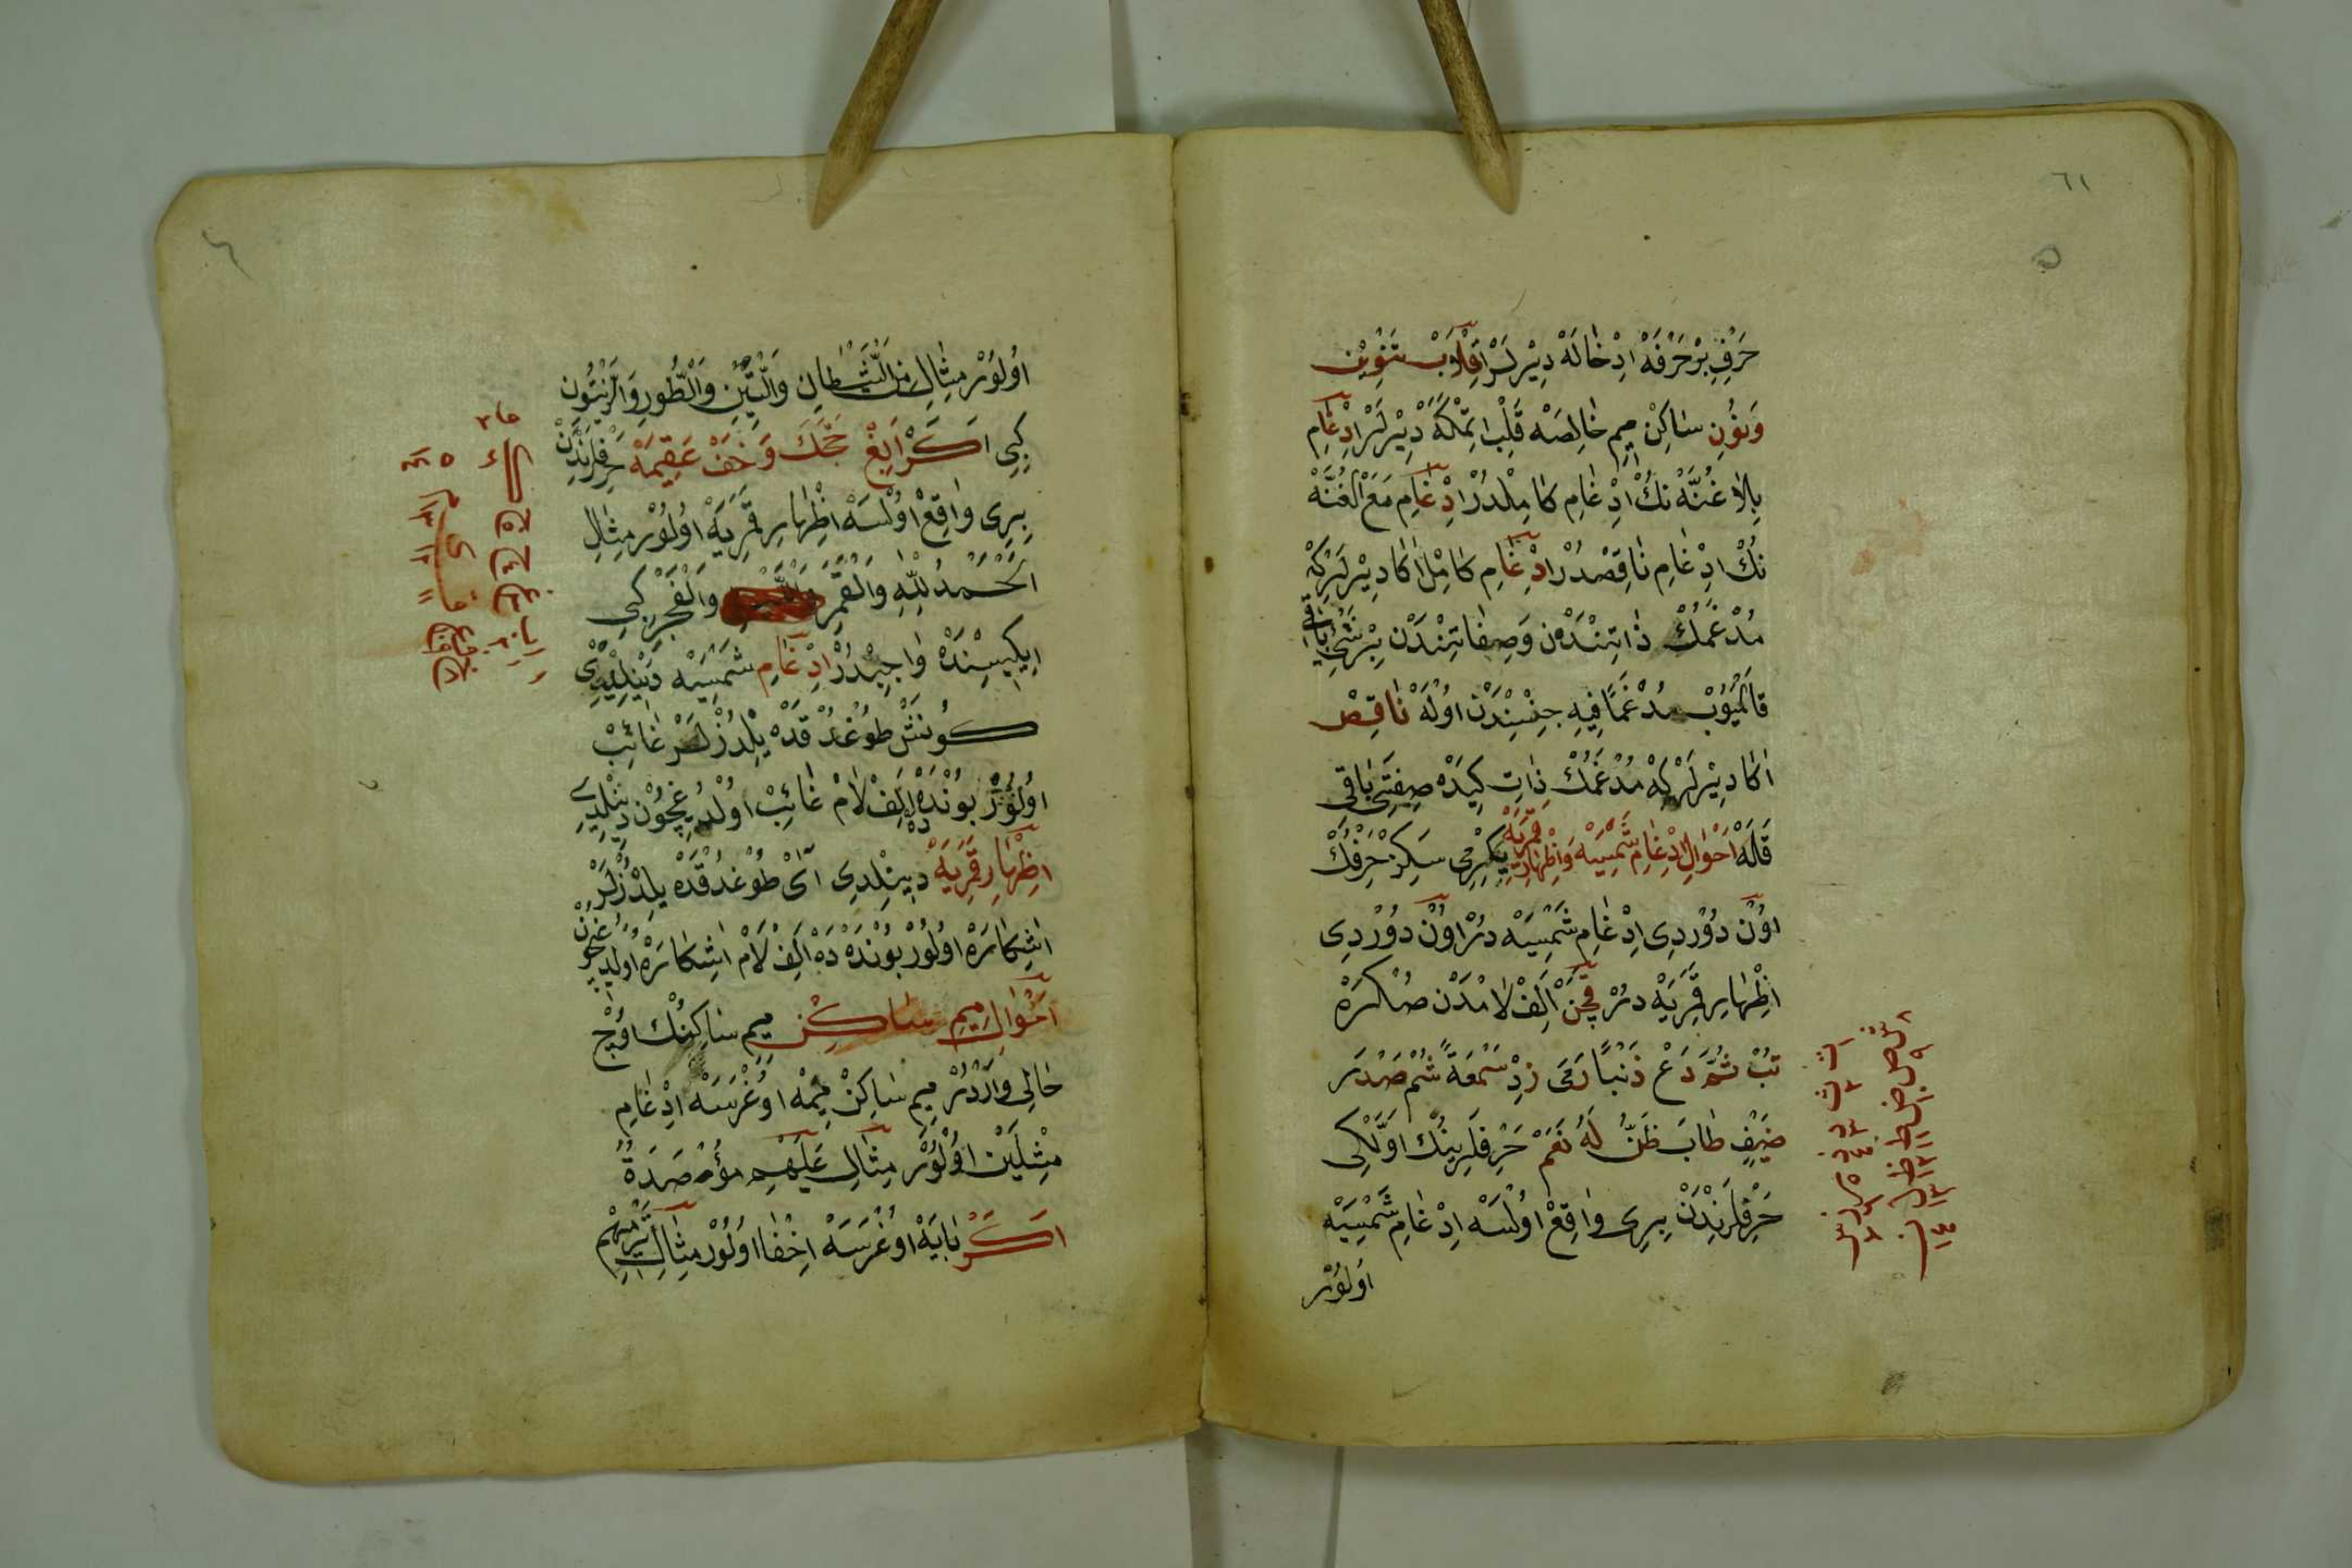 ٦١
حَرْفِ بِرْ حَرْفَهْ اِدْخَالَهْ دِيْرلَرْ اِقْلَابْ تَنْوِيْن
وَنُونِ سَاكِنْ مِيمِ خَالِصَهْ قَلْبْ اِتْمَكَهْ دِيْرلَرْ اِدْغَامِ
بِلَا غُنَّهْ نِكْ اِدْغَامِ كَامِلْدُرْ اِدْغَامِ مَعَ الْغُنَّهْ
نِكْ اِدْغَامِ نَاقِصْدُرْ اِدْغَامِ كَامِلْ اَكَا دِيْرلَرْكِهْ
مُدْغَمُكْ ذَاتِنْدَنْ وَصِفَاتِنْدَنْ بِرْ شَيْ بَاقِي
قَالْمَيُوبْ مُدْغَمًا فِيهِ جِنْسِنْدَنْ اُولَهْ نَاقِصْ
اَكَا دِيْرلَرْكِهْ مُدْغَمُكْ ذَاتِ كِيدَهْ صِفَتِى بَاقِى
قَلَهْ اَحْوَالِ اِدْغَامِ شَمْسِيَّهْ وَاِظْهَارِ قَمَرِيَّهْ يِكِرْمِى سَكِزْ حَرْفُكْ
اُونْ دُوْرْدِى اِدْغَامِ شَمْسِيَّهْ دُرْ اُونْ دُوْرْدِى
اِظْهَارِ قَمَرِيَّهْ دُرْ قَچَنْ اَلِفْ لَامْدَنْ صُكْرَهْ
تُبْ ثُمَّ دَعْ ذَنْبًا رَمَى زِدْ سَمْعَةً شُمْ صَدْرَ
ضَيْفٍ طَابَ ظَنُّ لَهُ نَعَمْ حَرْفلَرِينُكْ اَوَّلْكِى
حَرْفلَرِنْدَنْ بِرِى وَاقِعْ اُولْسَهْ اِدْغَامِ شَمْسِيَّهْ
اُولُوْر
اُولُوْرْ مِثَالِ مِنَ الشَّيْطَانِ وَالتِّيْنِ وَالطُّورِ وَالزَّيْتُونِ
كِبِى اَكَرْ اِبْغِ حَجَّكَ وَخَفْ عَقِيمَهْ حَرْفلَرِنْدَنْ
بِرِى وَاقِعْ اُولْسَهْ اِظْهَارِ قَمَرِيَّهْ اُولُوْرْ مِثَالِ
اَلْحَمْدُ لِلّٰهِ وَالْقَمَرِ وَالْفَجْرِ كِبِى
اِيكِيسِنْدَهْ وَاجِبْدُرْ اِدْغَامِ شَمْسِيَّهْ دَيْنِلْدِى
كُونَشْ طُوغْدُقْدَهْ يِلْدُزْلَرْ غَائِبْ
اُولُوْرْ بُونْدَهْ دَهْ اَلِفْ لَامْ غَائِبْ اُولْدُغِيچُونْ دَيْنِلْدِى
اِظْهَارِ قَمَرِيَّهْ دِيِنِلْدِى آىْ طُوغْدُقْدَهْ يِلْدُزْلَرْ
اَشِكَارَهْ اُولُوْرْ بُونْدَهْ دَهْ اَلِفْ لَامْ اَشِكَارَهْ اُولْدُغِيچُونْ
اَحْوَالِ مِيمِ سَاكِنْ مِيمِ سَاكِنُكْ اُوْچْ
حَالِى وَارْدُرْ مِيمِ سَاكِنْ مِيمْهْ اُوغْرَسَهْ اِدْغَامِ
مِثْلَيْنْ اُولُوْرْ مِثَالِ عَلَيْهِمْ مُؤْصَدَةٌ
اَكَرْ بَايَهْ اُوغْرَسَهْ اِخْفَا اُولُوْرْ مِثَالِ تَرْمِيهِمْ